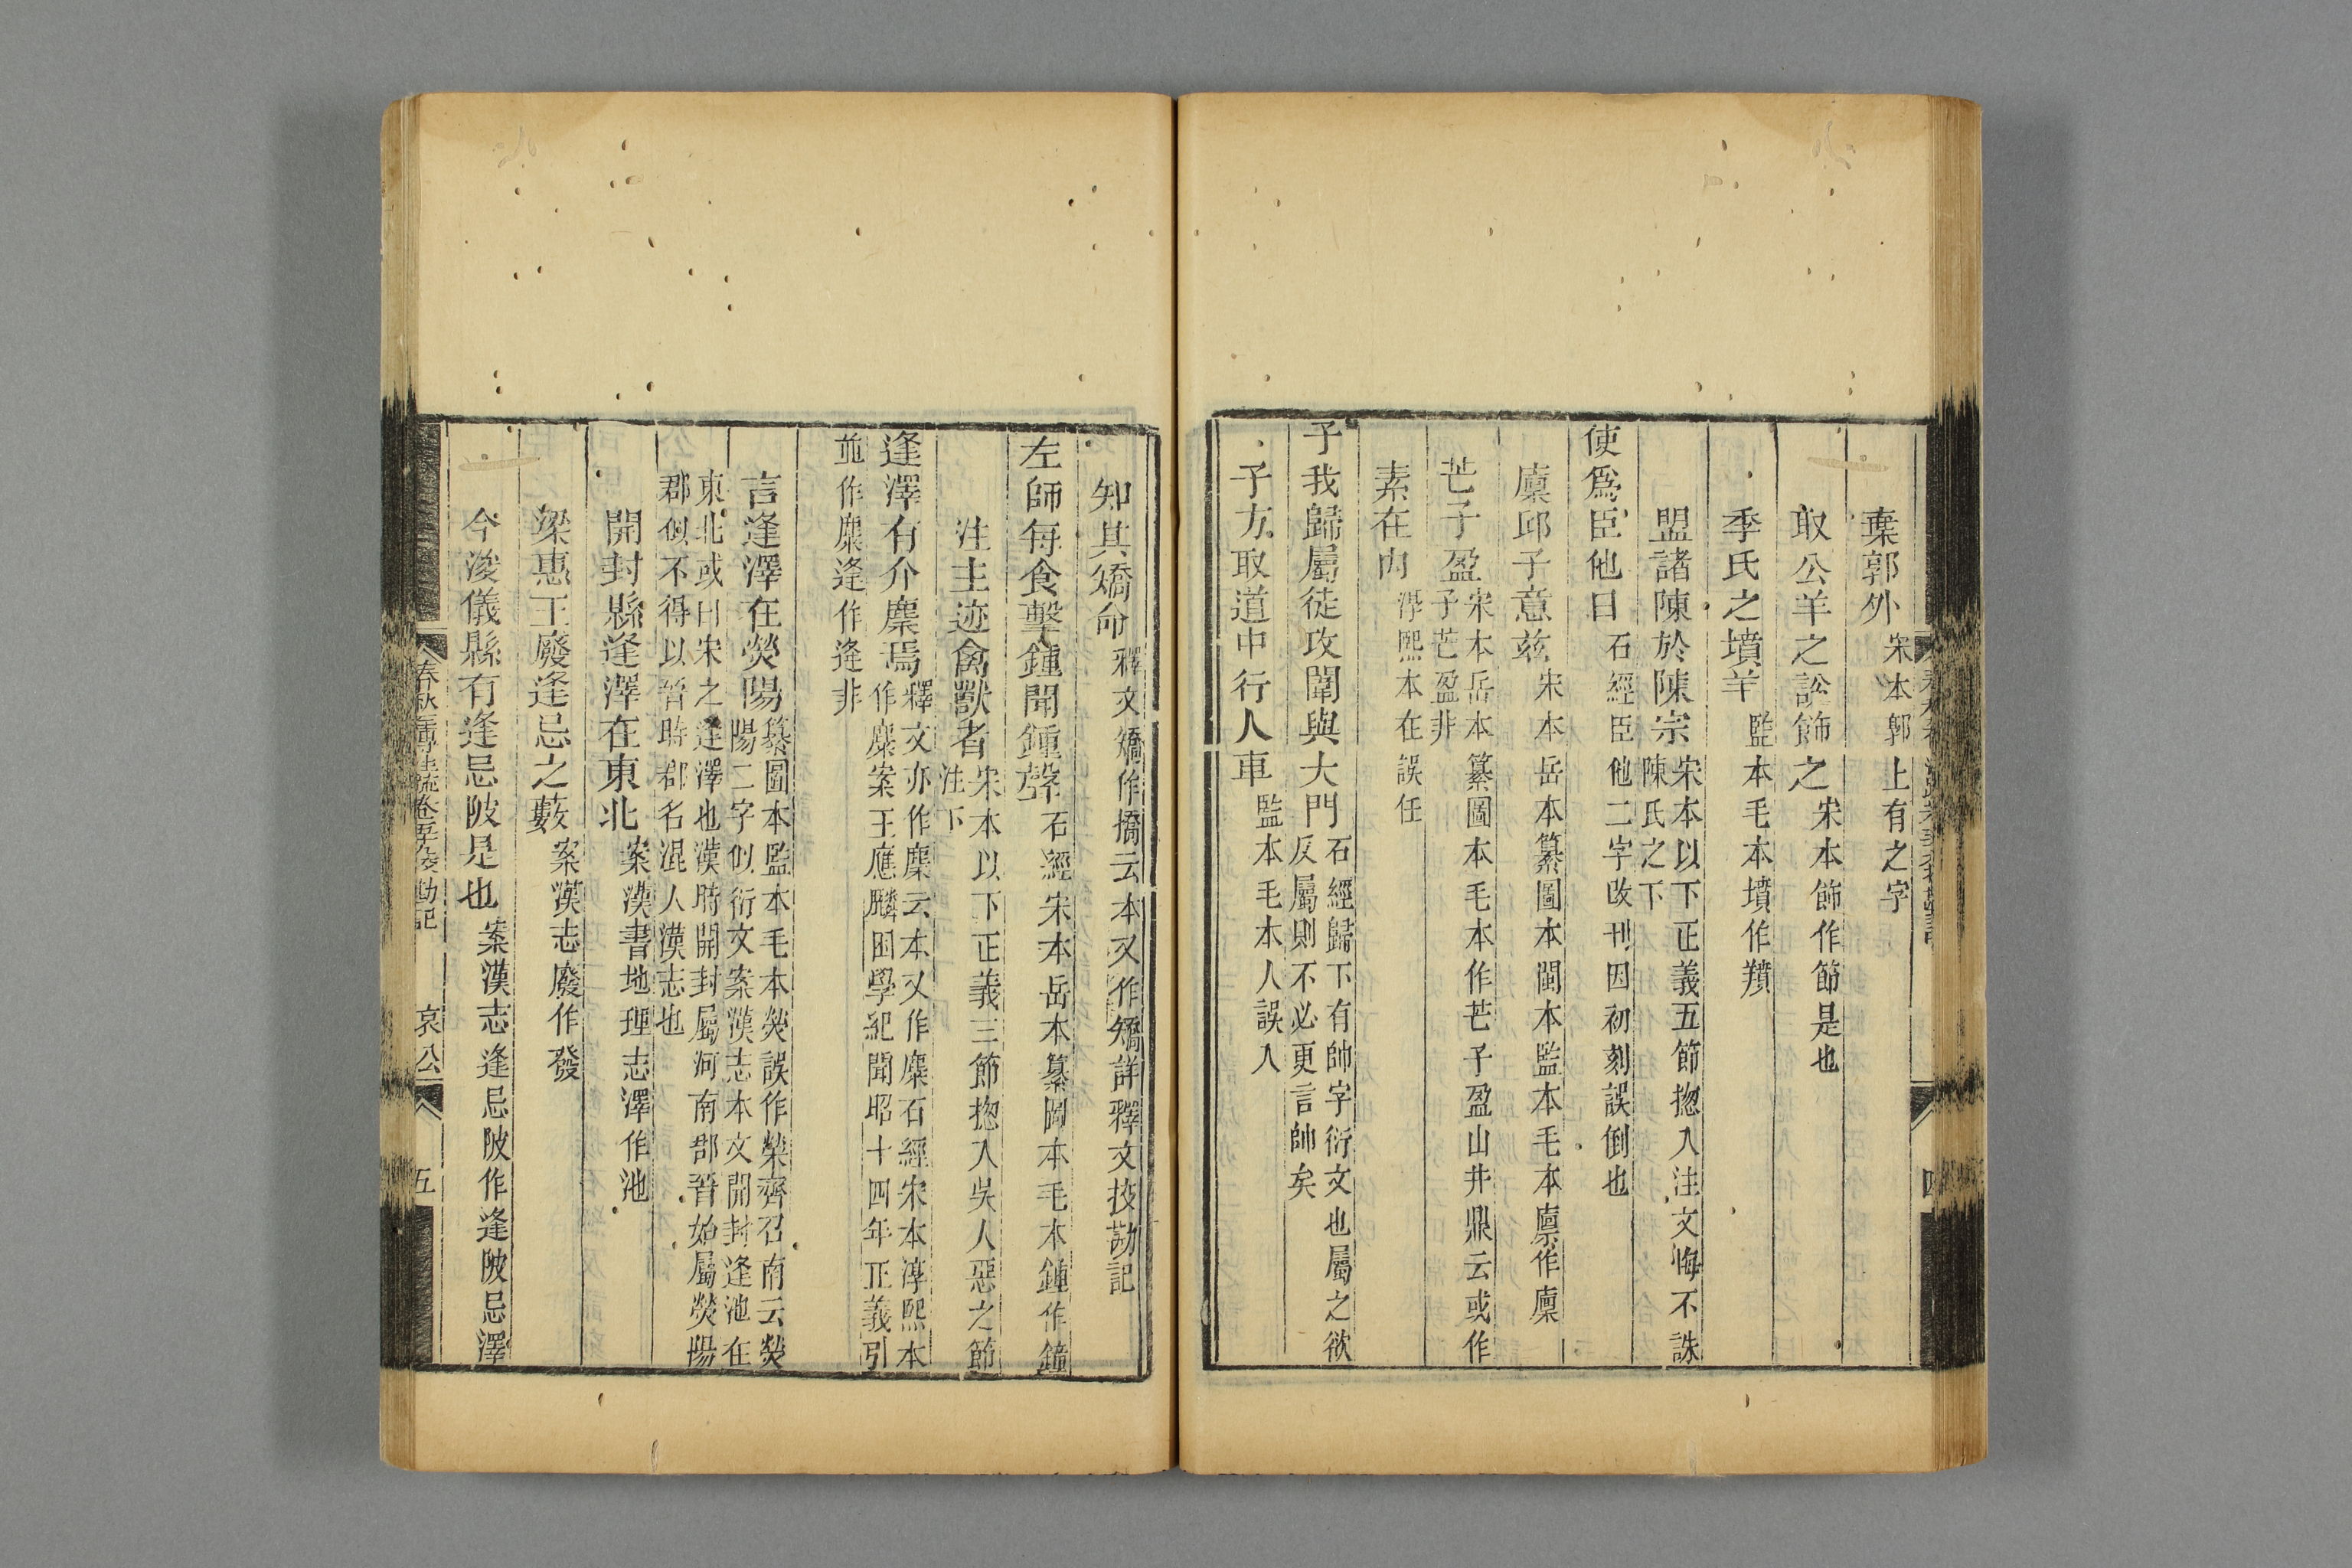 棄郭外宋本郭上有之字
取公羊之訟節之宋本節作節是也
季氏之墳羊監本毛本墳作羵
盟諸陳於陳宗宋本以下正義五節揔入注文悔不誅陳氏之下
使爲臣他日石經臣他二字改刊因初刻誤倒也
廩邱子意玆宋本岳本纂圖本閩本監本毛本廪作廩
芒子盈宋本岳本纂圖本毛本作芒子盈山井鼎云或作子芒盈非
素在內淳熙本在誤任
子我歸屬徒攻闈與大門石經歸下有帥字衍文也屬之欲反屬則不必更言帥矣
子方取道中行人車監本毛本人誤入
知其矯命釋文矯作撟云本又作矯詳釋文挍勘記
左師每食擊鍾聞鍾聲石經宋本岳本纂圖本毛本鍾作鐘
注主迹禽獸者宋本以下正義三節揔入吳人惡之節注下
逢澤有介麇焉釋文亦作麇云本又作麋石經宋本淳熙本作麋案王應麟困學紀聞昭十四年正義引
並作麋逢作逄非
言逢澤在熒陽纂圖本監本毛本熒誤作榮齊召南云熒陽二字似衍文案漢志本文開封逢池在
東北或曰宋之逢澤也漢時開封屬河南郡晉始屬熒陽郡似不得以晉時郡名混入漢志也
開封縣逢澤在東北案漢書地理志澤作池
梁惠王廢逢忌之藪案漢志廢作發
今浚儀縣有逢忌陂是也案漢志逢忌陂作逢陂忌澤
春秋左傳注疏卷五十九挍勘記 哀公 五